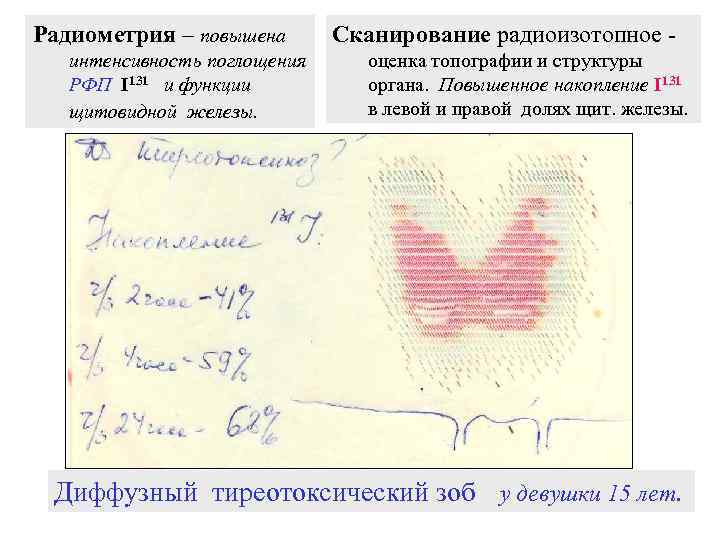 Радиометрия – повышена
интенсивность поглощения
РФП I131 и функции
щитовидной железы.
Сканирование радиоизотопное -
оценка топографии и структуры
органа. Повышенное накопление I131
в левой и правой долях щит. железы.
Ds Тиреотоксикоз?
Накопление 131 I.
ч/з 2 часа - 41%
ч/з 4 часа - 59%
ч/з 24 часа - 68%
Диффузный тиреотоксический зоб у девушки 15 лет.